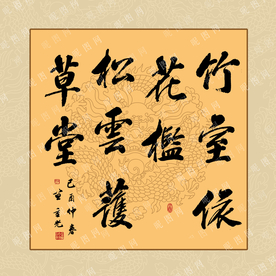 竹室依
花檻
松雲護
草堂
己酉仲春